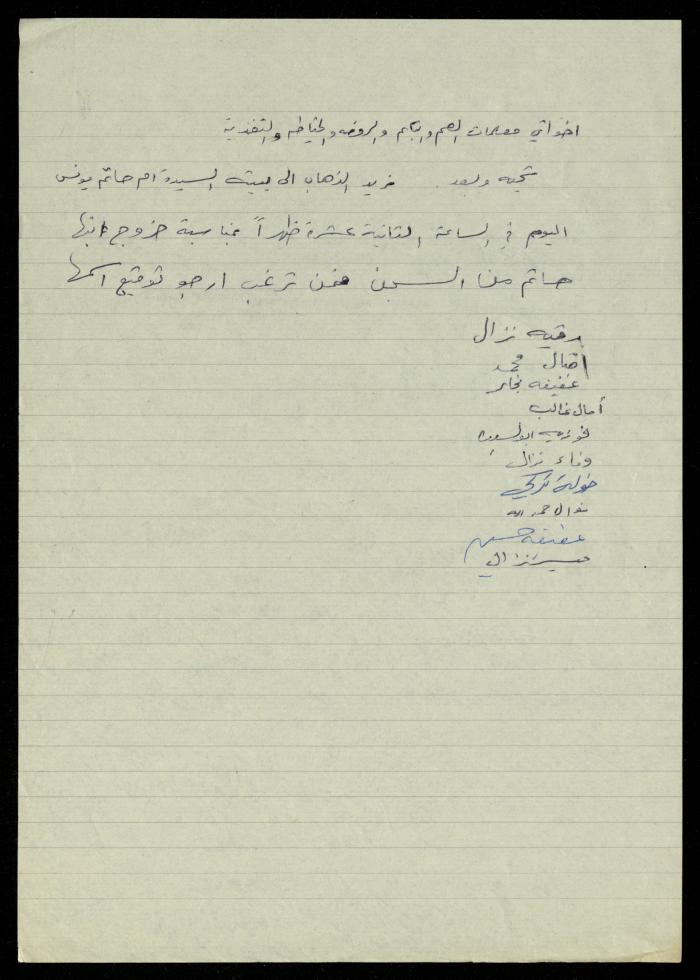 اخواتي معلمات الصم والبكم والروضه والخياطه والتغذية
تحيه وبعد. نريد الذهاب الى بيت السيدة ام حاتم يونس
اليوم في الساعة الثانية عشرة ظهراً بمناسبة خروج ابنها
حاتم من السجن فمن ترغب ارجو توقيع اسمها
رقيه نزال
اقبال محمد
عفيفه نجار
أمال غالب
فوزيه ابو السعود
وفاء نزال
خولة تركي
نوال حمدالله
عفيفه حسين
نزال